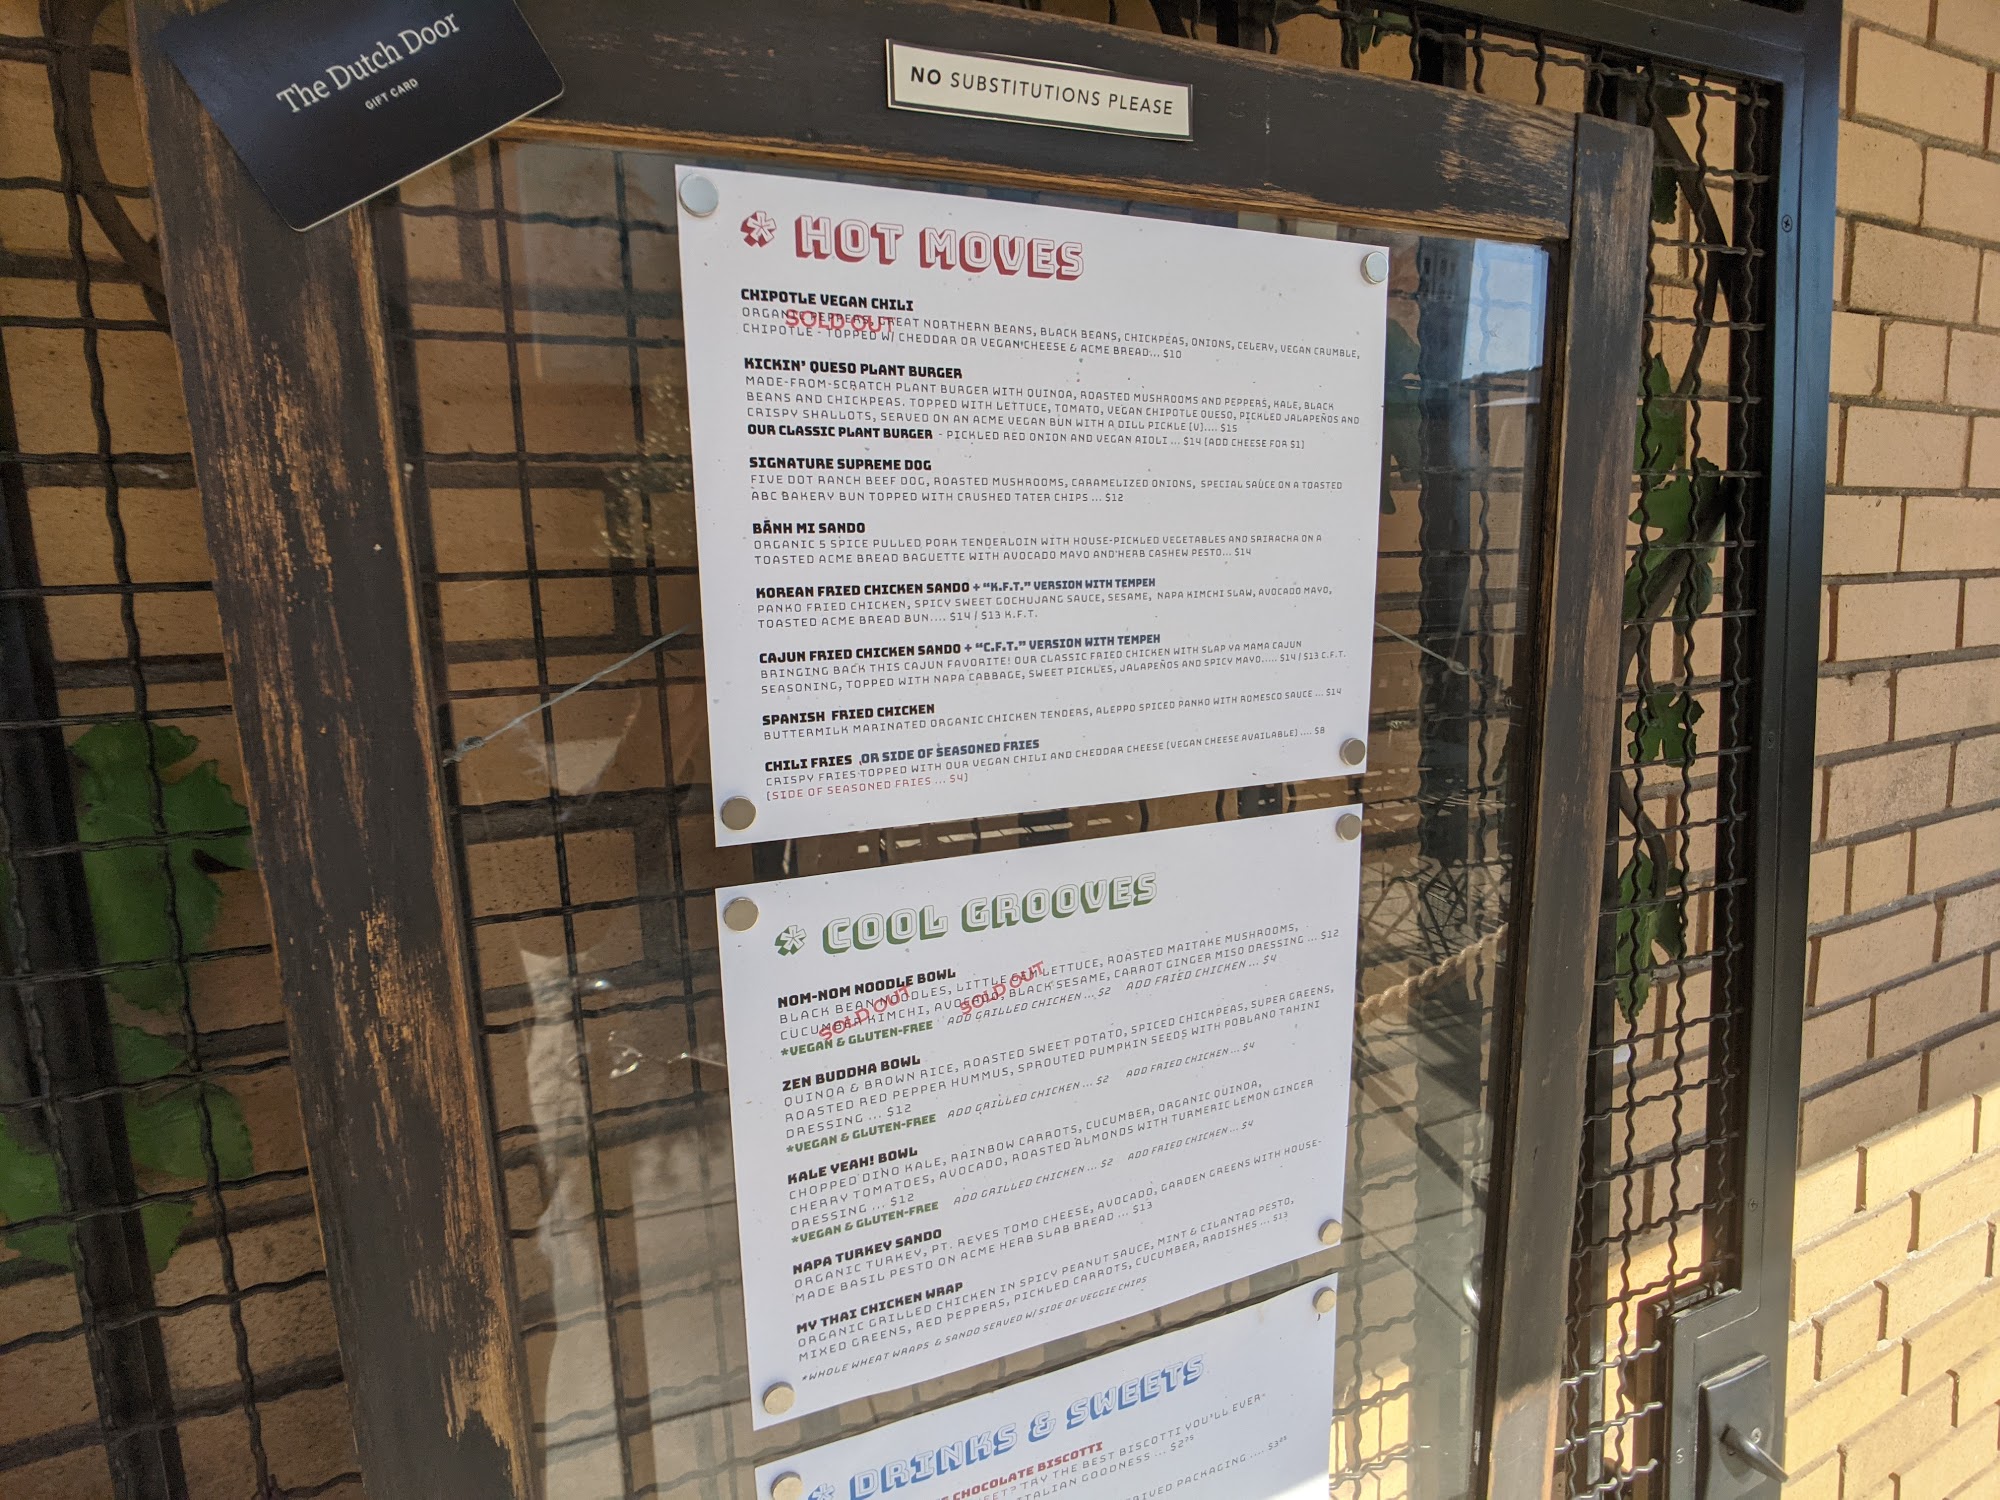 The Dutch Door
GIFT CARD
NO SUBSTITUTIONS PLEASE
* HOT MOVES
CHIPOTLE VEGAN CHILI
SOLD OUT
ORGANIC PEPPERS, GREAT NORTHERN BEANS, BLACK BEANS, CHICKPEAS, ONIONS, CELERY, VEGAN CRUMBLE,
CHIPOTLE - TOPPED W/ CHEDDAR OR VEGAN CHEESE & ACME BREAD... $10
KICKIN' QUESO PLANT BURGER
MADE-FROM-SCRATCH PLANT BURGER WITH QUINOA, ROASTED MUSHROOMS AND PEPPERS, KALE, BLACK
BEANS AND CHICKPEAS. TOPPED WITH LETTUCE, TOMATO, VEGAN CHIPOTLE QUESO, PICKLED JALAPEÑOS AND
CRISPY SHALLOTS, SERVED ON AN ACME VEGAN BUN WITH A DILL PICKLE (V).... $15
OUR CLASSIC PLANT BURGER - PICKLED RED ONION AND VEGAN AIOLI ... $14 (ADD CHEESE FOR $1)
SIGNATURE SUPREME DOG
FIVE DOT RANCH BEEF DOG, ROASTED MUSHROOMS, CARAMELIZED ONIONS, SPECIAL SAUCE ON A TOASTED
ABC BAKERY BUN TOPPED WITH CRUSHED TATER CHIPS ... $12
BÃNH MI SANDO
ORGANIC 5 SPICE PULLED PORK TENDERLOIN WITH HOUSE-PICKLED VEGETABLES AND SRIRACHA ON A
TOASTED ACME BREAD BAGUETTE WITH AVOCADO MAYO AND HERB CASHEW PESTO... $14
KOREAN FRIED CHICKEN SANDO + "K.F.T." VERSION WITH TEMPEH
PANKO FRIED CHICKEN, SPICY SWEET GOCHUJANG SAUCE, SESAME, NAPA KIMCHI SLAW, AVOCADO MAYO,
TOASTED ACME BREAD BUN.... $14 / $13 K.F.T.
CAJUN FRIED CHICKEN SANDO + "C.F.T." VERSION WITH TEMPEH
BRINGING BACK THIS CAJUN FAVORITE! OUR CLASSIC FRIED CHICKEN WITH SLAP YA MAMA CAJUN
SEASONING, TOPPED WITH NAPA CABBAGE, SWEET PICKLES, JALAPEÑOS AND SPICY MAYO..... $14 / $13 C.F.T.
SPANISH FRIED CHICKEN
BUTTERMILK MARINATED ORGANIC CHICKEN TENDERS, ALEPPO SPICED PANKO WITH ROMESCO SAUCE ... $14
CHILI FRIES OR SIDE OF SEASONED FRIES
CRISPY FRIES TOPPED WITH OUR VEGAN CHILI AND CHEDDAR CHEESE (VEGAN CHEESE AVAILABLE) .... $8
(SIDE OF SEASONED FRIES ... $4)
* COOL GROOVES
NOM-NOM NOODLE BOWL
BLACK BEAN NOODLES, LITTLE GEM LETTUCE, ROASTED MAITAKE MUSHROOMS,
CUCUMBER KIMCHI, AVOCADO, BLACK SESAME, CARROT GINGER MISO DRESSING ... $12
SOLD OUT SOLD OUT
*VEGAN & GLUTEN-FREE ADD GRILLED CHICKEN ... $2 ADD FRIED CHICKEN ... $4
ZEN BUDDHA BOWL
QUINOA & BROWN RICE, ROASTED SWEET POTATO, SPICED CHICKPEAS, SUPER GREENS,
ROASTED RED PEPPER HUMMUS, SPROUTED PUMPKIN SEEDS WITH POBLANO TAHINI
DRESSING ... $12
*VEGAN & GLUTEN-FREE ADD GRILLED CHICKEN ... $2 ADD FRIED CHICKEN ... $4
KALE YEAH! BOWL
CHOPPED DINO KALE, RAINBOW CARROTS, CUCUMBER, ORGANIC QUINOA,
CHERRY TOMATOES, AVOCADO, ROASTED ALMONDS WITH TURMERIC LEMON GINGER
DRESSING ... $12
*VEGAN & GLUTEN-FREE ADD GRILLED CHICKEN ... $2 ADD FRIED CHICKEN ... $4
NAPA TURKEY SANDO
ORGANIC TURKEY, PT. REYES TOMO CHEESE, AVOCADO, GARDEN GREENS WITH HOUSE-
MADE BASIL PESTO ON ACME HERB SLAB BREAD ... $13
MY THAI CHICKEN WRAP
ORGANIC GRILLED CHICKEN IN SPICY PEANUT SAUCE, MINT & CILANTRO PESTO,
MIXED GREENS, RED PEPPERS, PICKLED CARROTS, CUCUMBER, RADISHES ... $13
*WHOLE WHEAT WRAPS & SANDO SERVED W/ SIDE OF VEGGIE CHIPS
* DRINKS & SWEETS
CHOCOLATE BISCOTTI
TRY THE BEST BISCOTTI YOU'LL EVER-
ITALIAN GOODNESS ... $2.75
PACKAGING .... $3.95